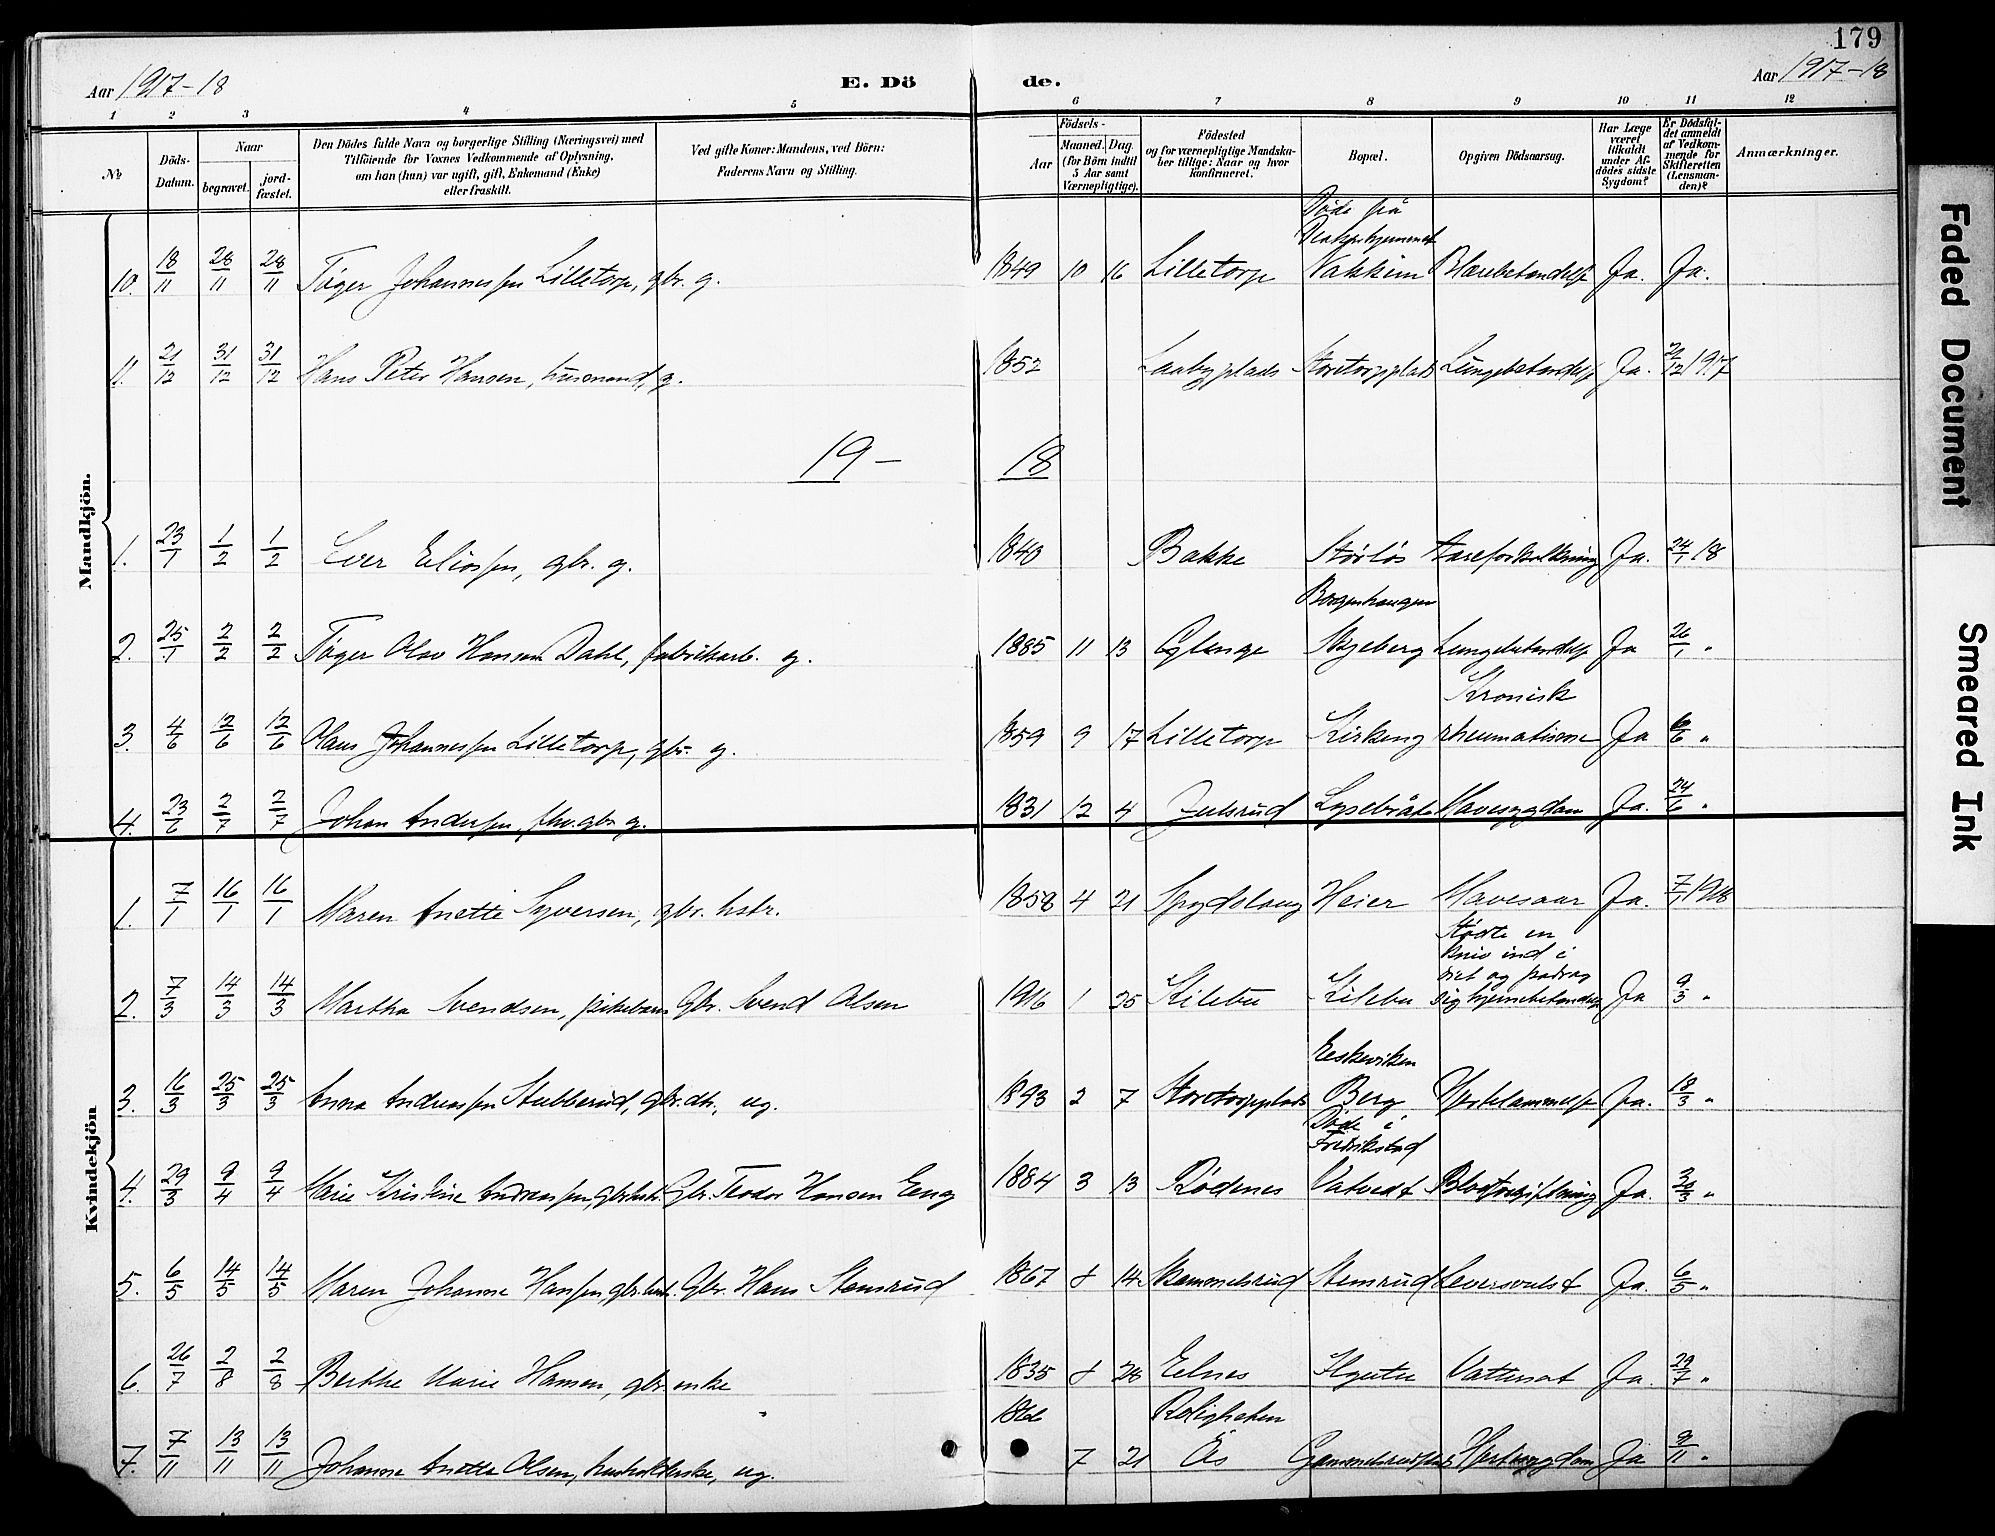 179
Aar 1917-18 E. Dö de. Aar 1917-18
1 2 3 4 5 6 7 8 9 10 11 12
№ Döds-Datum. Naar begravet. jord-fæstet. Den Dödes fulde Navn og borgerlige Stilling (Næringsvei) med Tilföiende for Voxnes Vedkommende af Oplysning, om han (hun) var ugift, gift, Enkemand (Enke) eller fraskilt. Ved gifte Koner: Mandens, ved Börn: Faderens Navn og Stilling. Födsels- Aar Maaned. Dag. (for Börn indtil 5 Aar samt Værnepligtige). Födested og for værnepligtige Mandska-ber tillige: Naar og hvor konfirmeret. Bopæl. Opgiven Dödsaarsag. Har Læge været tilkaldt under Af-dödes sidste Sygdom? Er Dödsfal-det anmeldt af Vedkom-mende for Skifteretten (Lensman-den)? Anmærkninger.
Mandkjön.
Døde på
10. 18/11 28/11 28/11 Tøger Johannessen Lilletorp, gbr. g. 1849 10 16 Lilletorp Blærebetændelse Ja. Ja.
11. 21/12 31/12 31/12 Hans Peter Hansen, husmand, g. 1852 Storetorpplads Lungebetændelse Ja. 1917
19- 18
1. 23/1 1/2 1/2 Iver Eliassen, gbr. g. 1840 Bakke Aareforkalkning Ja. 24/1 18
Borgenhaugen
2. 25/1 2/2 2/2 Tøger Olav Hansen Dahl, fabrikarb. g. 1885 11 13 Glenge Skjeberg Lungebetændelse Ja 26/1 "
Kronisk
3. 4/6 12/6 12/6 Olaus Johannessen Lilletorp, gbr. g. 1859 9 17 Lilletorp Kirkeng rheumatisme Ja 6/6 "
4. 23/6 2/7 2/7 Johan Anderssen, fhv. gbr. g. 1831 12 4 Julsrud Lysebråte Mavesygdom Ja. 24/6 "
Kvindekjön
1. 7/1 16/1 16/1 Maren Anette Syversen, gbr. hstr. 1858 4 21 Spydslaug Heier Mavesaar Ja. 7/1 1918
Stødte en
kniv ind i
øiet og pådrog
2. 7/3 14/3 14/3 Martha Svendsen, pikebarn Gbr. Svend Olsen 1916 1 25 Kilebu Kilebu sig hjernebetændelse Ja 9/3 "
Eskeviken
3. 16/3 25/3 25/3 Anna Andreassen Stubberud, gbr. dtr., ug. 1893 2 7 Storetorpplads Berg Hjertelammelse Ja. 18/3 "
Døde i
Fredrikstad
4. 29/3 9/4 9/4 Marie Kristine Andreassen, gbr. hstr. Gbr. Teodor Hansen Eng 1884 3 13 Rødenes Vatvedt Blodforgiftning Ja. 30/3 "
5. 6/5 14/5 14/5 Maren Johanne Hanssen, gbr. hstr. Gbr. Hans Stemsrud 1867 8 14 Stemsrud Leversvulst Ja. 6/5 "
6. 26/7 2/8 2/8 Berthe Marie Hansen, gbr. enke 1835 8 28 Elnes Vattersot Ja. 29/7 "
Roligheten
7. 7/11 13/11 13/11 Johanne Anette Olsen, husholderske, ug. 7 21 Ås Hjertesygdom Ja 9/11 "
Faded Document
Smeared Ink